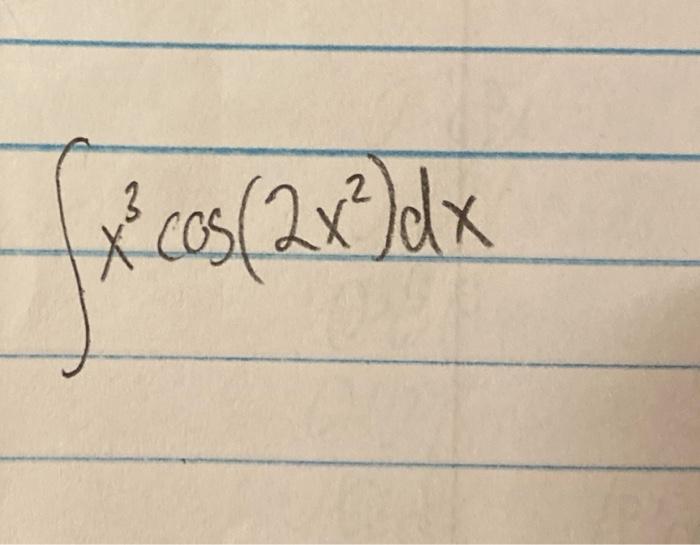 ∫x³ cos(2x²)dx